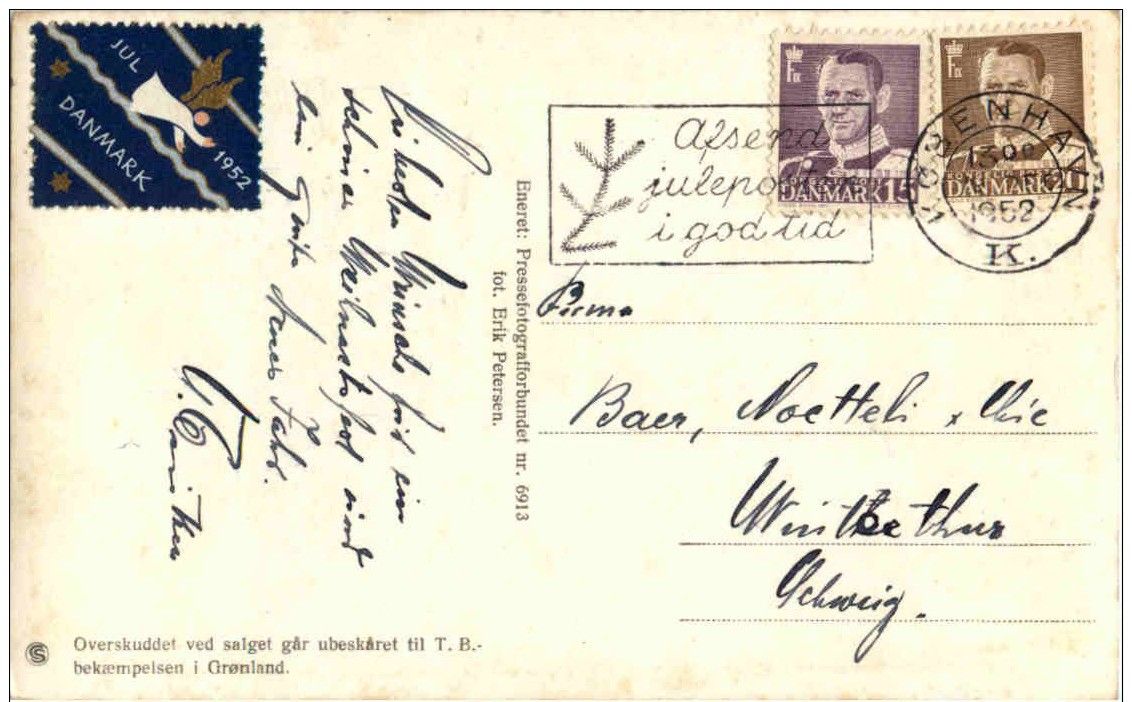 JUL
DANMARK
1952
DANMARK 15
DANMARK
KØBENHAVN
1952
K.
Afsend
juleposten
i god tid
Die besten Wünsche für ein
schönes Weihnachtsfest und
ein gutes neues Jahr.
Eneret: Pressefotografforbundet nr. 6913
fot. Erik Petersen.
Firma
Baer, Noetteli & Cie
Winterthur
Schweiz.
Overskuddet ved salget går ubeskåret til T. B.-
bekæmpelsen i Grønland.